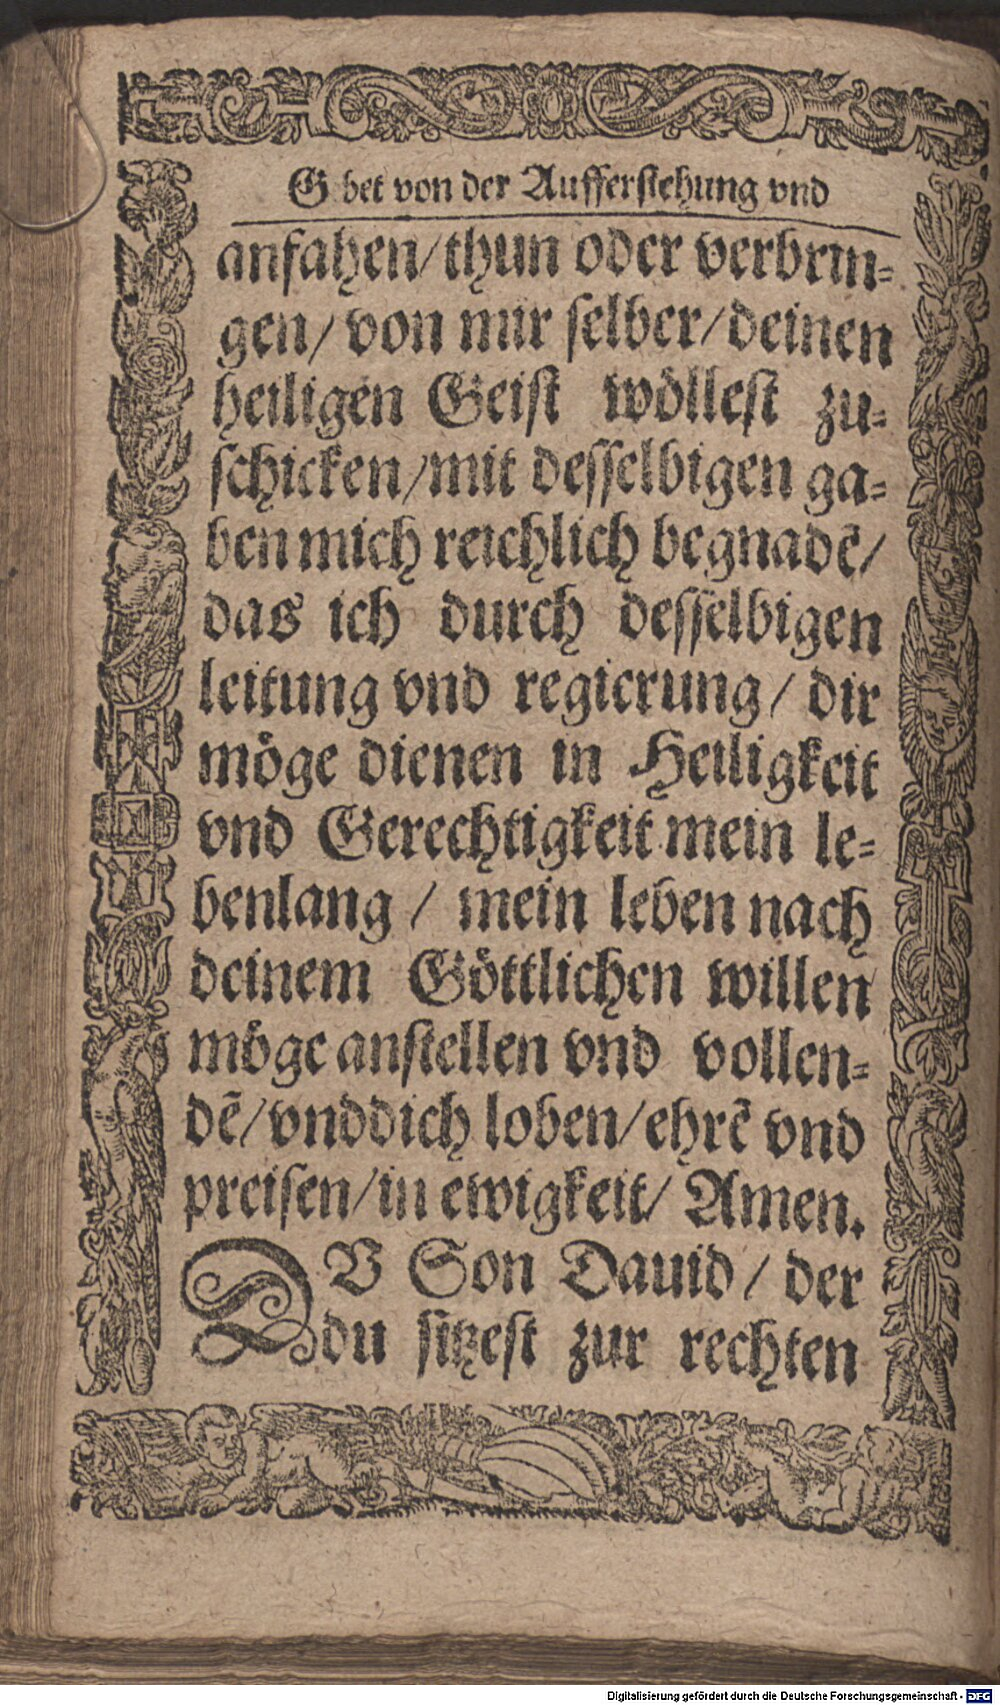 G bet von der Aufferstehung vnd
anfahen/thun oder verbrin-
gen/ von mir selber/deinen
heiligen Geist wöllest zu-
schicken/mit desselbigen ga-
ben mich reichlich begnadē/
das ich durch desselbigen
leitung vnd regierung/ dir
möge dienen in Heiligkeit
vnd Gerechtigkeit mein le-
benlang / mein leben nach
deinem Göttlichen willen
möge anstellen vnd vollen-
dē/vnddich loben/ehrē vnd
preisen/in ewigkeit/ Amen.
DV Son Dauid/ der
du sitzest zur rechten
Digitalisierung gefördert durch die Deutsche Forschungsgemeinschaft - DFG